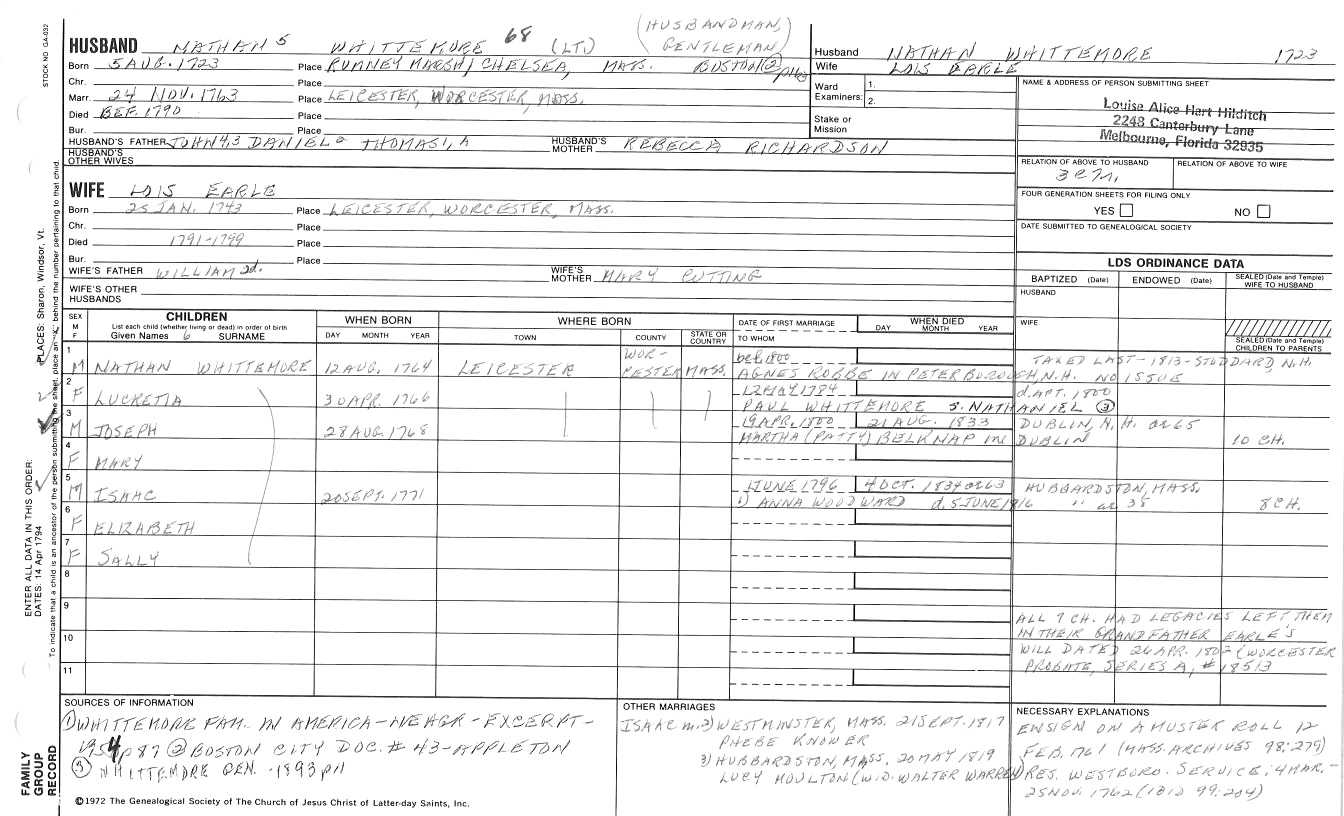 STOCK NO GA-032
(HUSBANDMAN, GENTLEMAN)
HUSBAND NATHAN 5 WHITTEMORE 68 (LT.)
Born 5 AUG. 1723 Place RUMNEY MARSH, CHELSEA, MASS. BOSTON (2) p163
Chr. Place
Marr. 24 NOV. 1763 Place LEICESTER, WORCESTER, MASS.
Died BEF. 1790 Place
Bur. Place
HUSBAND'S FATHER JOHN 4,3 DANIEL 2 THOMAS 1, A HUSBAND'S MOTHER REBECCA RICHARDSON
HUSBAND'S OTHER WIVES
Husband NATHAN WHITTEMORE 1723
Wife LOIS EARLE
Ward Examiners: 1.
2.
Stake or Mission
NAME & ADDRESS OF PERSON SUBMITTING SHEET
Louise Alice Hart Hilditch
2243 Canterbury Lane
Melbourne, Florida 32935
RELATION OF ABOVE TO HUSBAND RELATION OF ABOVE TO WIFE
FOUR GENERATION SHEETS FOR FILING ONLY
YES NO
DATE SUBMITTED TO GENEALOGICAL SOCIETY
WIFE LOIS EARLE
Born 25 JAN. 1743 Place LEICESTER, WORCESTER, MASS.
Chr. Place
Died 1791-1799 Place
Bur. Place
WIFE'S FATHER WILLIAM 2d. WIFE'S MOTHER MARY CUTTING
WIFE'S OTHER HUSBANDS
LDS ORDINANCE DATA
BAPTIZED (Date) ENDOWED (Date) SEALED (Date and Temple) WIFE TO HUSBAND
HUSBAND
WIFE
SEALED (Date and Temple) CHILDREN TO PARENTS
SEX M F
CHILDREN
List each child (whether living or dead) in order of birth
Given Names 6 SURNAME
WHEN BORN
DAY MONTH YEAR
WHERE BORN
TOWN COUNTY STATE OR COUNTRY
DATE OF FIRST MARRIAGE
TO WHOM
WHEN DIED
DAY MONTH YEAR
1 M NATHAN WHITTEMORE 12 AUG. 1764 LEICESTER WOR-CESTER MASS. bef. 1800 TAXED LAST-1813-STODDARD, N.H.
AGNES ROBBE IN PETERBOROUGH, N.H. NO ISSUE
2 F LUCRETIA 30 APR. 1766 12 MAY 1784 d. APT. 1800
PAUL WHITTEMORE S. NATHANIEL (3)
3 M JOSEPH 28 AUG. 1768 19 APR. 1800 21 AUG. 1833 DUBLIN, N.H. ae 65
MARTHA (PATTY) BELKNAP IN DUBLIN 10 CH.
4 F MARY
5 M ISAAC 20 SEPT. 1771 1 JUNE 1796 4 OCT. 1834 ae 63 HUBBARDSTON, MASS.
1) ANNA WOODWARD d. 5 JUNE 1816 " ae 38 8 CH.
6 F ELIZABETH
7 F SALLY
8
9
10
11
ALL 7 CH. HAD LEGACIES LEFT THEM
IN THEIR GRANDFATHER EARLE'S
WILL DATED 26 APR. 1802 (WORCESTER
PROBATE, SERIES A, #18513
SOURCES OF INFORMATION
(1) WHITTEMORE FAM. IN AMERICA-NEHGR-EXCERPT-
1954 p 87 (2) BOSTON CITY DOC. # 43-APPLETON
(3) WHITTEMORE GEN. -1893 p11
OTHER MARRIAGES
ISAAC m. 2) WESTMINSTER, MASS. 21 SEPT. 1817
PHEBE KNOWER
3) HUBBARDSTON, MASS. 20 MAY 1819
LUCY MOULTON (WID. WALTER WARREN)
NECESSARY EXPLANATIONS
ENSIGN ON A MUSTER ROLL 12
FEB. 1761 (MASS. ARCHIVES 98:279)
RES. WESTBORO. SERVICE; 4 MAR.-
25 NOV. 1762 (IBID 99:204)
©1972 The Genealogical Society of The Church of Jesus Christ of Latter-day Saints, Inc.
FAMILY GROUP RECORD
ENTER ALL DATA IN THIS ORDER:
DATES: 14 Apr 1794
PLACES: Sharon, Windsor, Vt.
To indicate that a child is an ancestor of the person submitting the sheet, place an "X" behind the number pertaining to that child.